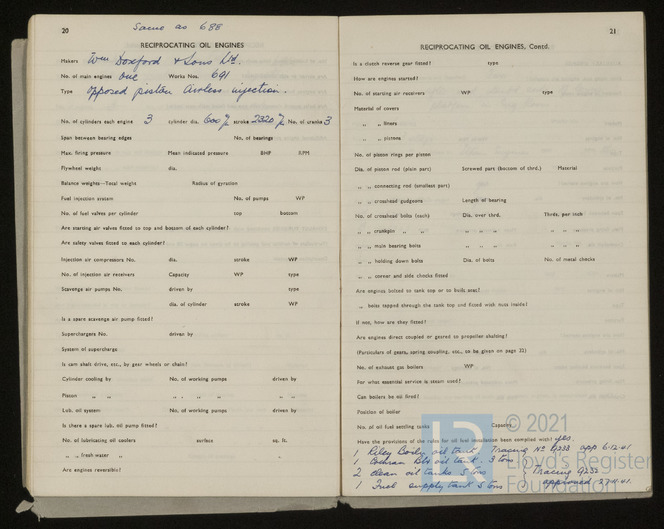 20
Same as 688
RECIPROCATING OIL ENGINES
Makers Wm Doxford & Sons Ltd.
No. of main engines one Works Nos. 691
Type opposed piston airless injection.
No. of cylinders each engine 3 cylinder dia. 600 m/m stroke 2320 m/m No. of cranks 3
Span between bearing edges No. of bearings
Max. firing pressure Mean indicated pressure BHP RPM
Flywheel weight dia.
Balance weights—Total weight Radius of gyration
Fuel injection system No. of pumps WP
No. of fuel valves per cylinder top bottom
Are starting air valves fitted to top and bottom of each cylinder?
Are safety valves fitted to each cylinder?
Injection air compressors No. dia. stroke WP
No. of injection air receivers Capacity WP type
Scavenge air pumps No. driven by type
dia. of cylinder stroke WP
Is a spare scavenge air pump fitted?
Superchargers No. driven by
System of supercharge
Is cam shaft drive, etc., by gear wheels or chain?
Cylinder cooling by No. of working pumps driven by
Piston „ „ „ „ „ „ „
Lub. oil system No. of working pumps driven by
Is there a spare lub. oil pump fitted?
No. of lubricating oil coolers surface sq. ft.
„ „ fresh water „ „
Are engines reversible?
21
RECIPROCATING OIL ENGINES, Contd.
Is a clutch reverse gear fitted? type
How are engines started?
No. of starting air receivers WP type
Material of covers
„ „ liners
„ „ pistons
No. of piston rings per piston
Dia. of piston rod (plain part) Screwed part (bottom of thrd.) Material
„ „ connecting rod (smallest part)
„ „ crosshead gudgeons Length of bearing
No. of crosshead bolts (each) Dia. over thrd. Thrds. per inch
„ „ crankpin „ „ „ „ „ „ „ „
„ „ main bearing bolts „ „ „ „ „ „
„ „ holding down bolts Dia. of bolts No. of metal chocks
„ „ corner and side chocks fitted
Are engines bolted to tank top or to built seat?
„ bolts tapped through the tank top and fitted with nuts inside?
If not, how are they fitted?
Are engines direct coupled or geared to propeller shafting?
(Particulars of gears, spring coupling, etc., to be given on page 22)
No. of exhaust gas boilers WP
For what essential service is steam used?
Can boilers be oil fired?
Position of boiler
No. of oil fuel settling tanks Capacity
Have the provisions of the rules for oil fuel installation been complied with? yes.
1 Riley Boiler oil tank Tracing No 9333 app 6.12.41
1 Cochran Blr oil tank. 3 tons
2 clean oil tanks 5 tons } Tracing 9233
1 Fuel supply tank 5 tons } approved 27.11.41
© 2021
Lloyd's Register
Foundation